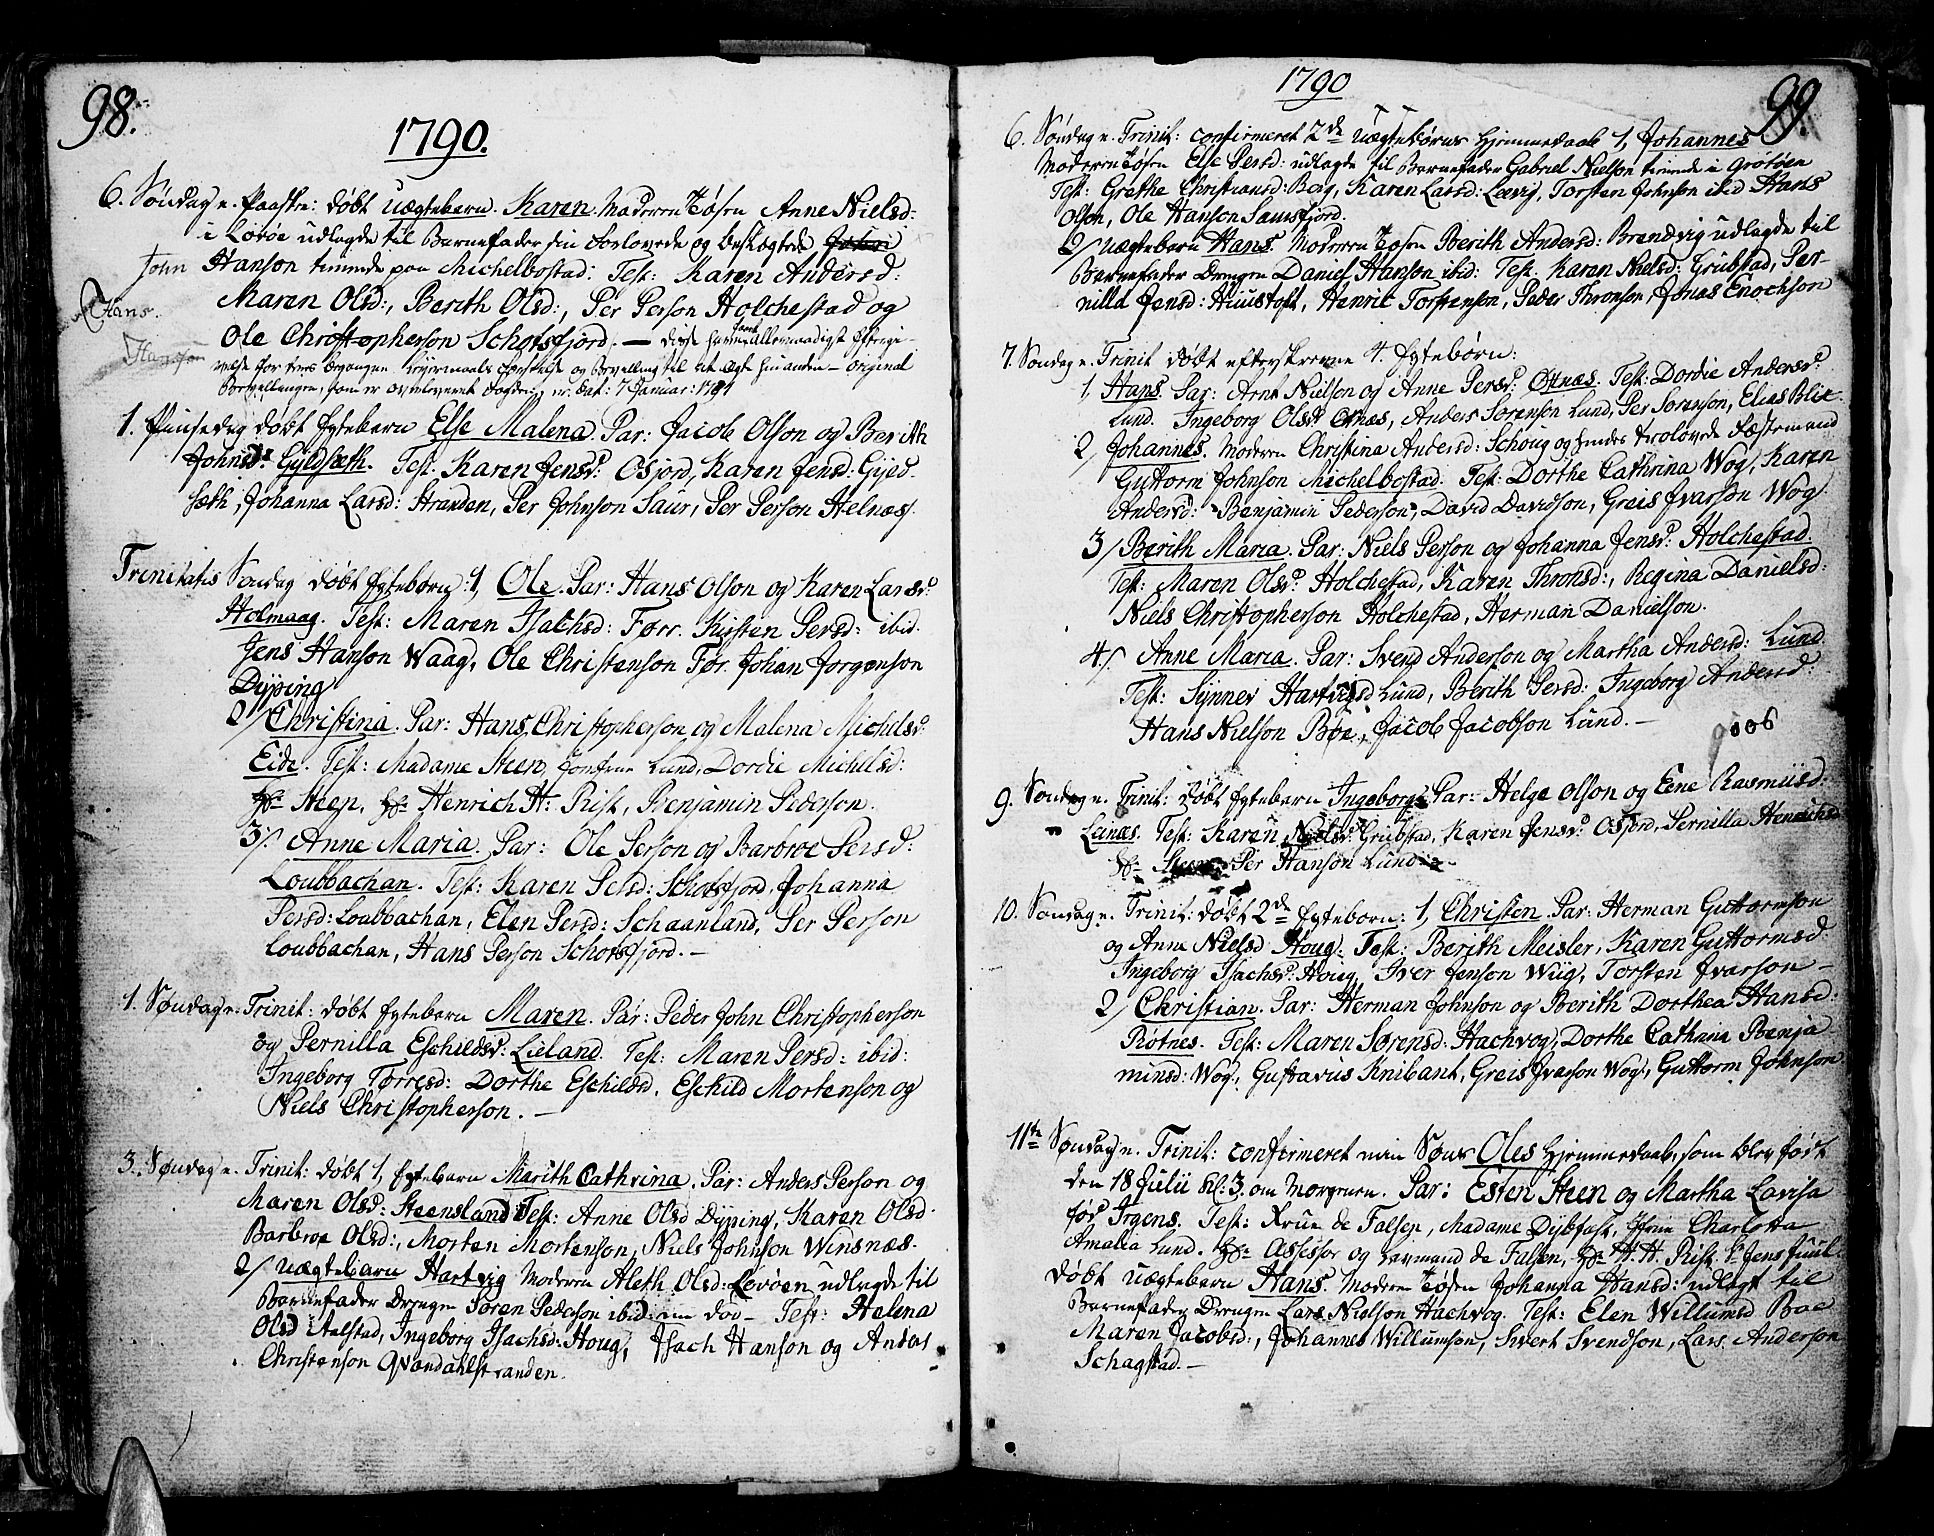 98.
1790.
6. Søndag e. Paaske: døbt uægtebarn Karen. Moderen Tøsen Anne Nielsd:
i Lovøe udlagde til Barnefader sin trolovede og besl
John Hanson tienende paa Michelbostad. Test: Karen Andersd:
Hans.
Maren Olsd:, Berith Olsd:, Per Person Holchestad og
Hanson
Ole Christopherson Schotsfjord. — disse have allernaadigst Eftergi-
velse for deres begangne Leyermaal og Bevilling til at ægte hinanden – original
Bevillingen, som er dat: 7 Januar: 1791
1. Pinsedag døbt Ægtebarn Else Malena. Par: Jacob Olson og Berith
Johnsd: Gyldsæth. Test: Karen Jensd: Osjord, Karen Jensd: Gyld-
sæth, Johanna Larsd: Stranden, Per Johnson Saur, Per Person Helnæs.
Trinitatis Søndag døbt Ægtebørn: 1, Ole. Par: Hans Olson og Karen Larsd:
Holmaag. Test: Maren Isachsd: Førr. Kirsten Persd: ibid.
Jens Hanson Waag, Ole Christenson Før. Johan Jorgenson
Dyping
2/ Christina. Par: Hans Christopherson og Malena Michelsd:
Eide. Test: Madame Steen, Jomfrue Lund, Dordie Michelsd:
Hr. Steen, Hr. Henrich H. Rist, Benjamin Pederson.
3/. Anne Maria. Par: Ole Person og Barbroe Persd:
Loubbachan. Test: Karen Persd: Schotsfjord, Johanna
Persd: Loubbachan, Elen Persd: Schaanland, Per Person
Loubbachan, Hans Person Schotsfjord. –
1. Søndag e. Trinit: døbt Ægtebarn Maren. Par: Peder John Christopherson
og Pernilla Eschildsd: Lieland. Test: Maren Persd: ibid:
Ingeborg Torresd: Dorthe Eschildsd. Eschild Mortenson og
Niels Christopherson. –
3. Søndag e. Trinit: døbt 1, Ægtebarn Marith Cathrina. Par: Anders Person og
Maren Olsd: Steensland Test: Anne Olsd Dyping, Karen Olsd.
Barbroe Olsd:, Morten Mortenson, Niels Johnson Winsnæs.
2/ uægtebarn Hartvig Moderen Aleth Olsd: Lovøen udlagde til
Barnefader Drengen Søren Pederson ibid: nu død – Test: Helena
Olsd Aalstad, Ingeborg Isachsd: Houg, Isach Hanson og Anders
Christenson Qvandahlstranden.
99
1790
6. Søndag e. Trinit: confirmeret 2de uægtebørns Hjemmedaab 1, Johannes
Moderen Tøsen Else Persd: udlagde til Barnefader Gabriel Nielson tienende i Grotøen
Test: Grethe Christiansd: Borg, Karen Larsd: Løevig, Torsten Johnson ibid Hans
Olson, Ole Hanson Saursfjord.
2/ uægtebarn Hans Moderen Tøsen Berith Andersd: Brendvig udlagde til
Barnefader Drengen Daniel Hanson ibid: Test: Karen Nielsd: Grubstad, Per-
nilla Jensd: Huustoft, Henric Torstenson, Peder Thronson, Jonas Enochson
7. Søndag e. Trinit døbt efterskrevne 4. Ægtebørn:
1, Hans. Par: Arnt Nielson og Anne Persd: Ørnæs. Test: Dordie Andersd:
Lund. Ingeborg Olsd: Ørnæs, Anders Sorenson Lund, Per Sorenson, Elias Blix
2/ Johannes. Moderen Christina Andersd: Schoug og hendes trolovede Fæstemand
Guttorm Johnson Michelbostad. Test: Dorthe Cathrina Wog, Karen
Andersd: Benjamin Pederson, David Davidson, Greis Ivarson Wog.
3/ Berith Maria. Par: Niels Person og Johanna Jensd: Holchestad.
Test: Maren Olsd: Holchestad, Karen Thronsd:, Regina Danielsd:
Niels Christopherson Holchestad, Herman Danielson.
4/. Anne Maria. Par: Svend Anderson og Martha Andersd: Lund
Test: Synnev Hartvigsd Lund, Berith Persd: Ingeborg Andersd:
Hans Nielson Bøe, Jacob Jacobson Lund. –
9. Søndag e. Trinit: døbt Ægtebarn Ingeborg. Par: Helge Olson og Ene Rasmusd:
Leinæs. Test: Karen Nielsd: Grubstad, Karen Jensd: Osjord, Pernilla Henrichsd
Hr. Steen. Per Hanson Lund.
10. Søndag e. Trinit: døbt 2de Ægtebørn: 1, Christen. Par: Herman Guttormson
og Anne Nielsd Houg. Test: Berith Meisler, Karen Guttormsd:
Ingeborg Isachsd: Houg, Iver Jenson Wiig, Torsten Ivarson –
2/ Christian. Par: Herman Johnson og Berith Dorthea Hansd:
Røtnes. Test: Maren Sorensd: Hachvog, Dorthe Cathrina Benja-
minsd: Wog, Gustavus Knibant, Greis Ivarson Wog, Guttorm Johnson
11te Søndag e. Trinit: confirmeret min Søns Oles Hjemmedaab, som blev født
den 18 Julii Kl: 3. om Morgenen. Par: Esten Steen og Martha Lavisa
før Irgens. Test: Frue de Falsen, Madame Dybfast, Jfrue Charlotta
Amalia Lund. Hr. Assessor og Lavmand de Falsen, Hr. H. H. Rist, Hr. Jens Juul-
døbt uægtebarn Hans. Moderen Tøsen Johanna Hansd: udlagt til
Barnefader Drengen Lars Nielson Hachvog. Test: Elen Willumsd Boe
Maren Jacobsd:, Johannes Willumson, Sivert Svendson, Lars Anderson
Schagstad. –